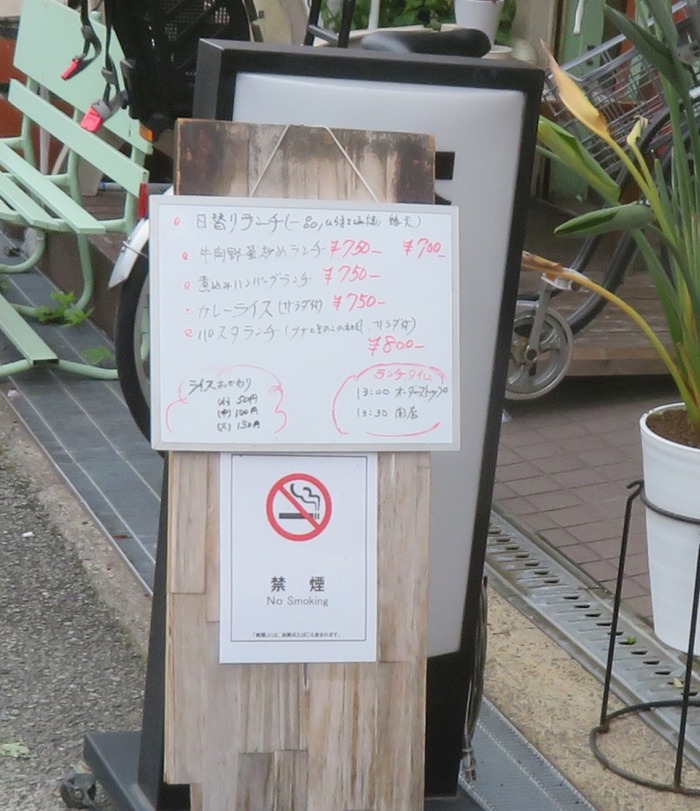 日替りランチ(一品,
牛肉野菜炒めランチ ¥750- ¥700-
煮込みハンバーグランチ ¥750-
カレーライス(サラダ付) ¥750-
パスタランチ(ツナときのこの和風 サラダ付)
¥800-
ライスおかわり
(小) 50円
(中) 100円
(大) 150円
ランチタイム
13:00 オーダーストップ
13:30 閉店
禁煙
No Smoking